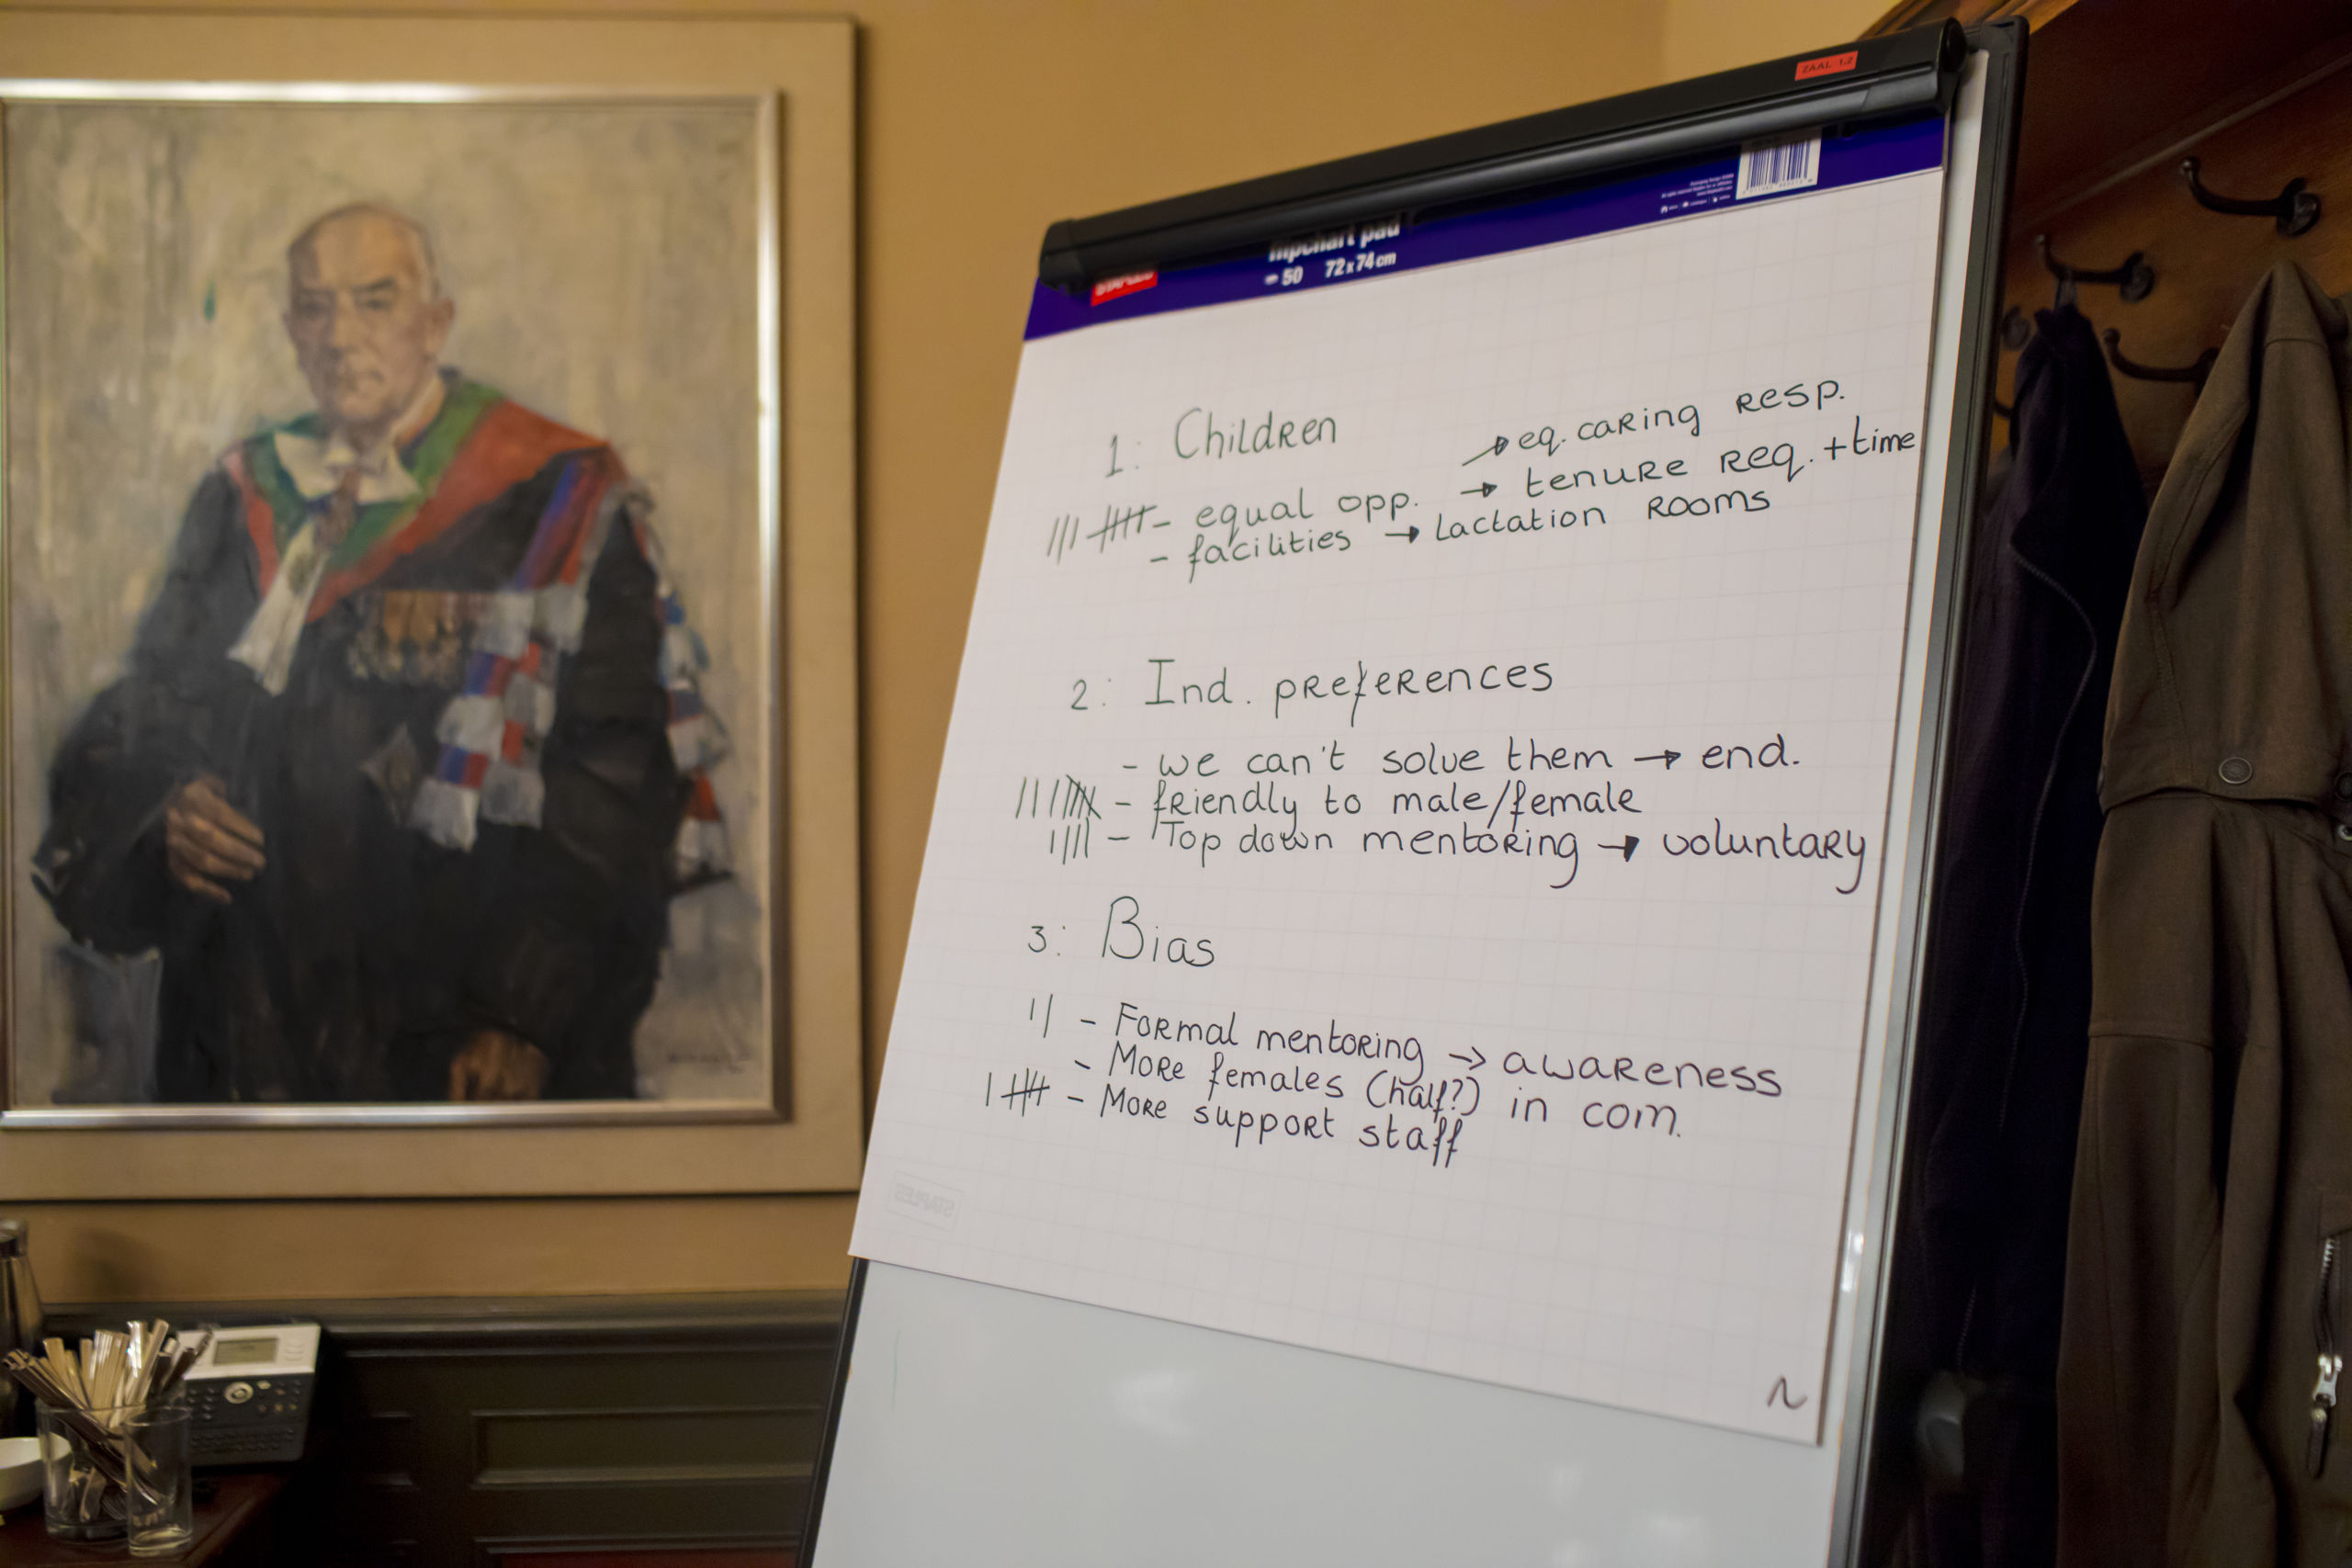 ZAAL 1.2
flipchart pad
50 72x74cm
STAPLES
1: Children
→ eq. caring resp.
- equal opp. → tenure req. + time
- facilities → Lactation rooms
2: Ind. preferences
- we can't solve them → end.
- friendly to male/female
- Top down mentoring → voluntary
3: Bias
- Formal mentoring → awareness
- More females (half?) in com.
- More support staff
STAPLES
N